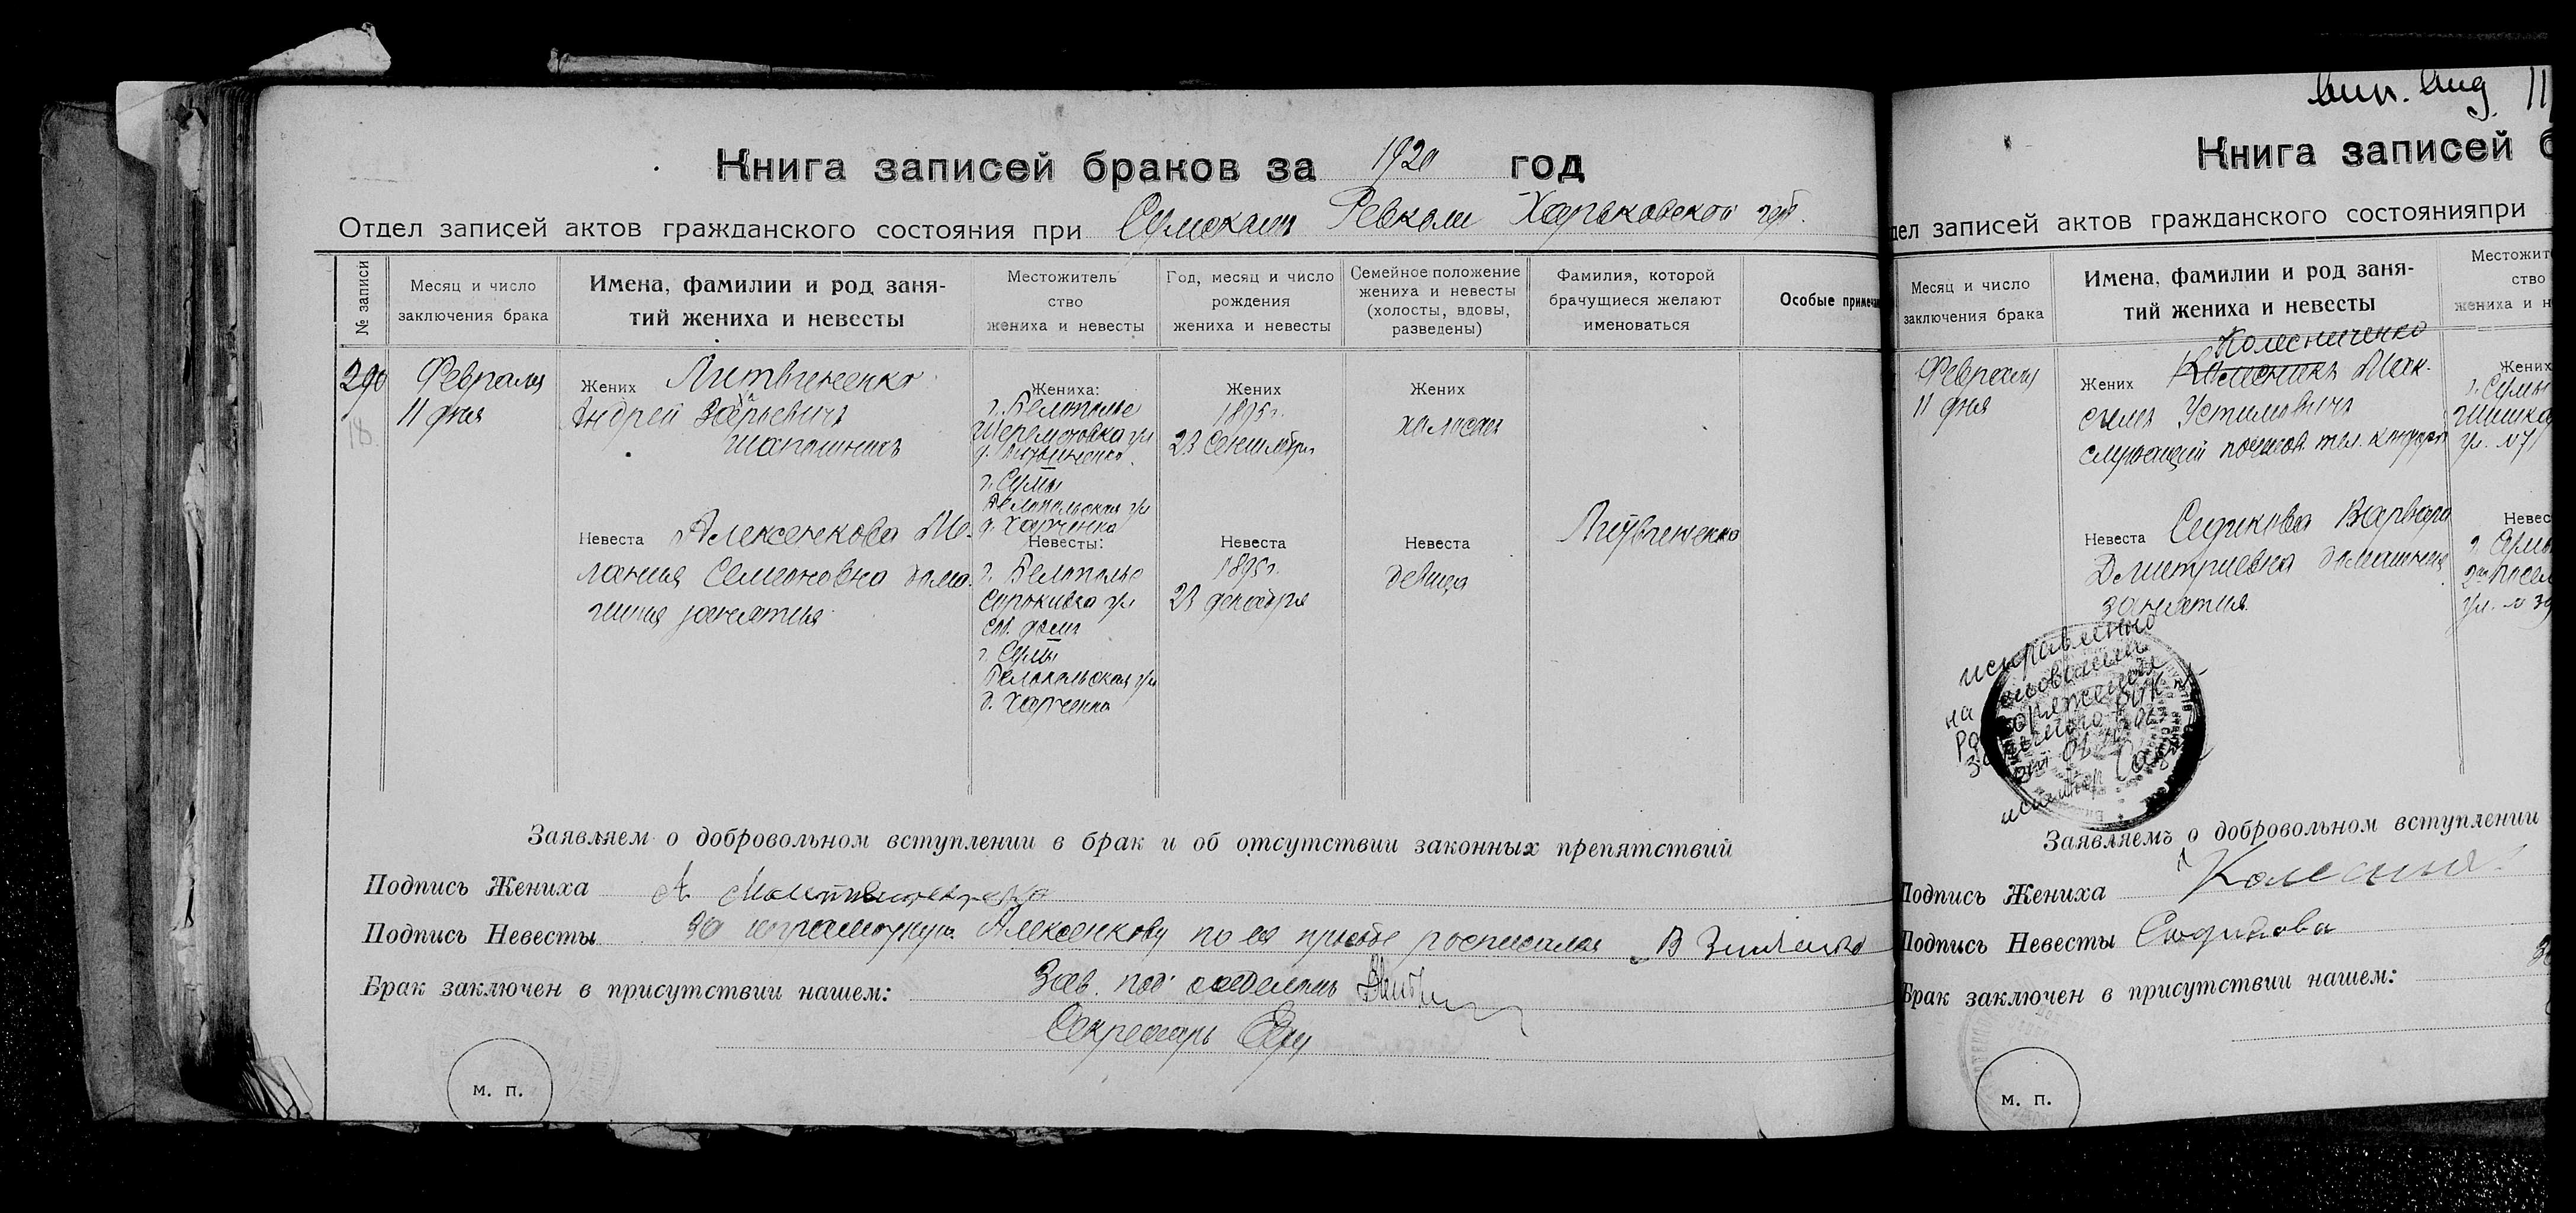 Книга записей браков за 1920 год
Отдел записей актов гражданского состояния при Сумском Ревкоме Харьковской губ.
№ записи
Месяц и число
заключения брака
Имена, фамилии и род заня-
тий жениха и невесты
Местожитель
ство
жениха и невесты
Год, месяц и число
рождения
жениха и невесты
Семейное положение
жениха и невесты
(холосты, вдовы,
разведены)
Фамилия, которой
брачущиеся желают
именоваться
Особые примеча
290
18.
Февраля
11 дня
Жених Литвиненко
Андрей
шапошникъ
Невеста Алексенкова Ме-
лания Семеновна дома-
шния занятия
Жениха:
г. Белополье
Шереметовка ул
д. Литвиненко
г. Сумы
Белопольская ул
д. Харченко
Невесты:
г. Белополье
Сумы
соб. дом
г. Сумы
Белопольская ул
д. Харченко
Жених
1895 г.
23 Сентября
Невеста
1895 г.
23 декабря
Жених
холост
Невеста
девица
Литвиненко
Заявляем о добровольном вступлении в брак и об отсутствии законных препятствий
Подпись Жениха А
Подпись Невесты За неграмотную Алексенкову по ея просьбе росписался В
Брак заключен в присутствии нашем: Зав. под отделом
Секретарь
м. п.
11
Книга записей б
дел записей актов гражданского состоянияпри
Месяц и число
заключения брака
Имена, фамилии и род заня-
тий жениха и невесты
Местожит
ство
жениха и н
Февраля
11 дня
Колесниченко
Жених Колесникъ Мак-
симъ Устимовичъ
служащий почтов. тел. конторы
Невеста Варвара
Дмитриевна домашния
занятия
Жених
г. Сумы
ул. №7
Невес
г. Сумы
2ая
ул. № 39
исправлено
на основании
Заявляемъ о добровольном вступлении
Подпись Жениха
Подпись Невесты
Брак заключен в присутствии нашем:
м. п.